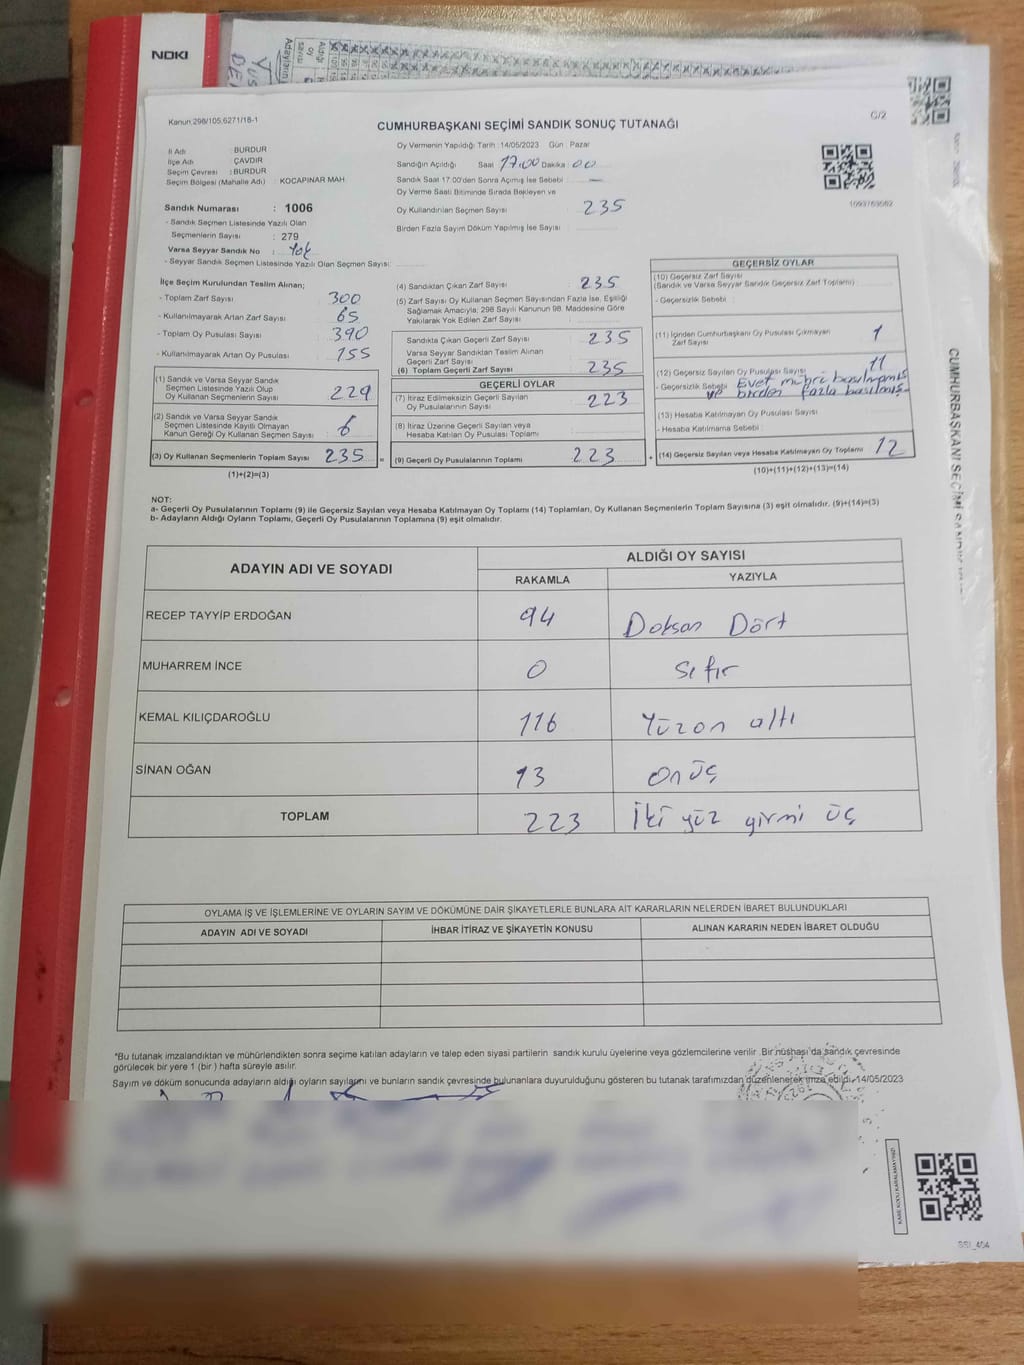 NOKI
Adayların
Aldığı
oy
sayısı
Kanun:298/105,6271/18-1
C/2
CUMHURBAŞKANI SEÇİMİ SANDIK SONUÇ TUTANAĞI
İl Adı : BURDUR
İlçe Adı : ÇAVDIR
Seçim Çevresi : BURDUR
Seçim Bölgesi (Mahalle Adı) : KOCAPINAR MAH.
Oy Vermenin Yapıldığı Tarih :14/05/2023 Gün : Pazar
Sandığın Açıldığı Saat 17.00 Dakika : 00
Sandık Saat 17:00'den Sonra Açımış İse Sebebi : —
Oy Verme Saati Bitiminde Sırada Bekleyen ve
Oy Kullandırılan Seçmen Sayısı : 235
Birden Fazla Sayım Döküm Yapılmış İse Sayısı :
Sandık Numarası : 1006
- Sandık Seçmen Listesinde Yazılı Olan
Seçmenlerin Sayısı : 279
Varsa Seyyar Sandık No : Yok
- Seyyar Sandık Seçmen Listesinde Yazılı Olan Seçmen Sayısı:
İlçe Seçim Kurulundan Teslim Alınan;
- Toplam Zarf Sayısı 300
- Kullanılmayarak Artan Zarf Sayısı : 65
- Toplam Oy Pusulası Sayısı : 390
- Kullanılmayarak Artan Oy Pusulası : 155
(1) Sandık ve Varsa Seyyar Sandık
Seçmen Listesinde Yazılı Olup
Oy Kullanan Seçmenlerin Sayısı : 229
(2) Sandık ve Varsa Seyyar Sandık
Seçmen Listesinde Kayıtlı Olmayan
Kanun Gereği Oy Kullanan Seçmen Sayısı : 6
(3) Oy Kullanan Seçmenlerin Toplam Sayısı : 235 =
(1)+(2)=(3)
(4) Sandıktan Çıkan Zarf Sayısı : 235
(5) Zarf Sayısı Oy Kullanan Seçmen Sayısından Fazla İse, Eşitliği
Sağlamak Amacıyla; 298 Sayılı Kanunun 98. Maddesine Göre
Yakılarak Yok Edilen Zarf Sayısı :
Sandıkta Çıkan Geçerli Zarf Sayısı : 235
Varsa Seyyar Sandıktan Teslim Alınan
Geçerli Zarf Sayısı :
(6) Toplam Geçerli Zarf Sayısı : 235
GEÇERLİ OYLAR
(7) İtiraz Edilmeksizin Geçerli Sayılan
Oy Pusulalarının Sayısı : 223
(8) İtiraz Üzerine Geçerli Sayılan veya
Hesaba Katılan Oy Pusulası Toplamı :
(9) Geçerli Oy Pusulalarının Toplamı : 223 +
GEÇERSİZ OYLAR
(10) Geçersiz Zarf Sayısı
(Sandık ve Varsa Seyyar Sandık Geçersiz Zarf Toplamı) :
- Geçersizlik Sebebi :
(11) İçinden Cumhurbaşkanı Oy Pusulası Çıkmayan
Zarf Sayısı : 1
(12) Geçersiz Sayılan Oy Pusulası Sayısı : 11
- Geçersizlik Sebebi : Evet mührü basılmamış
ve birden fazla basılmış
(13) Hesaba Katılmayan Oy Pusulası Sayısı :
- Hesaba Katılmama Sebebi :
(14) Geçersiz Sayılan veya Hesaba Katılmayan Oy Toplamı : 12
(10)+(11)+(12)+(13)=(14)
NOT:
a- Geçerli Oy Pusulalarının Toplamı (9) ile Geçersiz Sayılan veya Hesaba Katılmayan Oy Toplamı (14) Toplamları, Oy Kullanan Seçmenlerin Toplam Sayısına (3) eşit olmalıdır. (9)+(14)=(3)
b- Adayların Aldığı Oyların Toplamı, Geçerli Oy Pusulalarının Toplamına (9) eşit olmalıdır.
ADAYIN ADI VE SOYADI
ALDIĞI OY SAYISI
RAKAMLA YAZIYLA
RECEP TAYYİP ERDOĞAN 94 Doksan Dört
MUHARREM İNCE 0 sıfır
KEMAL KILIÇDAROĞLU 116 Yüzon altı
SİNAN OĞAN 13 on üç
TOPLAM 223 İki yüz yirmi üç
OYLAMA İŞ VE İŞLEMLERİNE VE OYLARIN SAYIM VE DÖKÜMÜNE DAİR ŞİKAYETLERLE BUNLARA AİT KARARLARIN NELERDEN İBARET BULUNDUKLARI
ADAYIN ADI VE SOYADI İHBAR İTİRAZ VE ŞİKAYETİN KONUSU ALINAN KARARIN NEDEN İBARET OLDUĞU
*Bu tutanak imzalandıktan ve mühürlendikten sonra seçime katılan adayların ve talep eden siyasi partilerin sandık kurulu üyelerine veya gözlemcilerine verilir. Bir nüshası da sandık çevresinde
görülecek bir yere 1 (bir) hafta süreyle asılır.
Sayım ve döküm sonucunda adayların aldığı oyların sayılarını ve bunların sandık çevresinde bulunanlara duyurulduğunu gösteren bu tutanak tarafımızdan düzenlenerek imza edildi. 14/05/2023
KARE KODU KARALAMAYINIZ!
CUMHURBAŞKANI SEÇİMİ